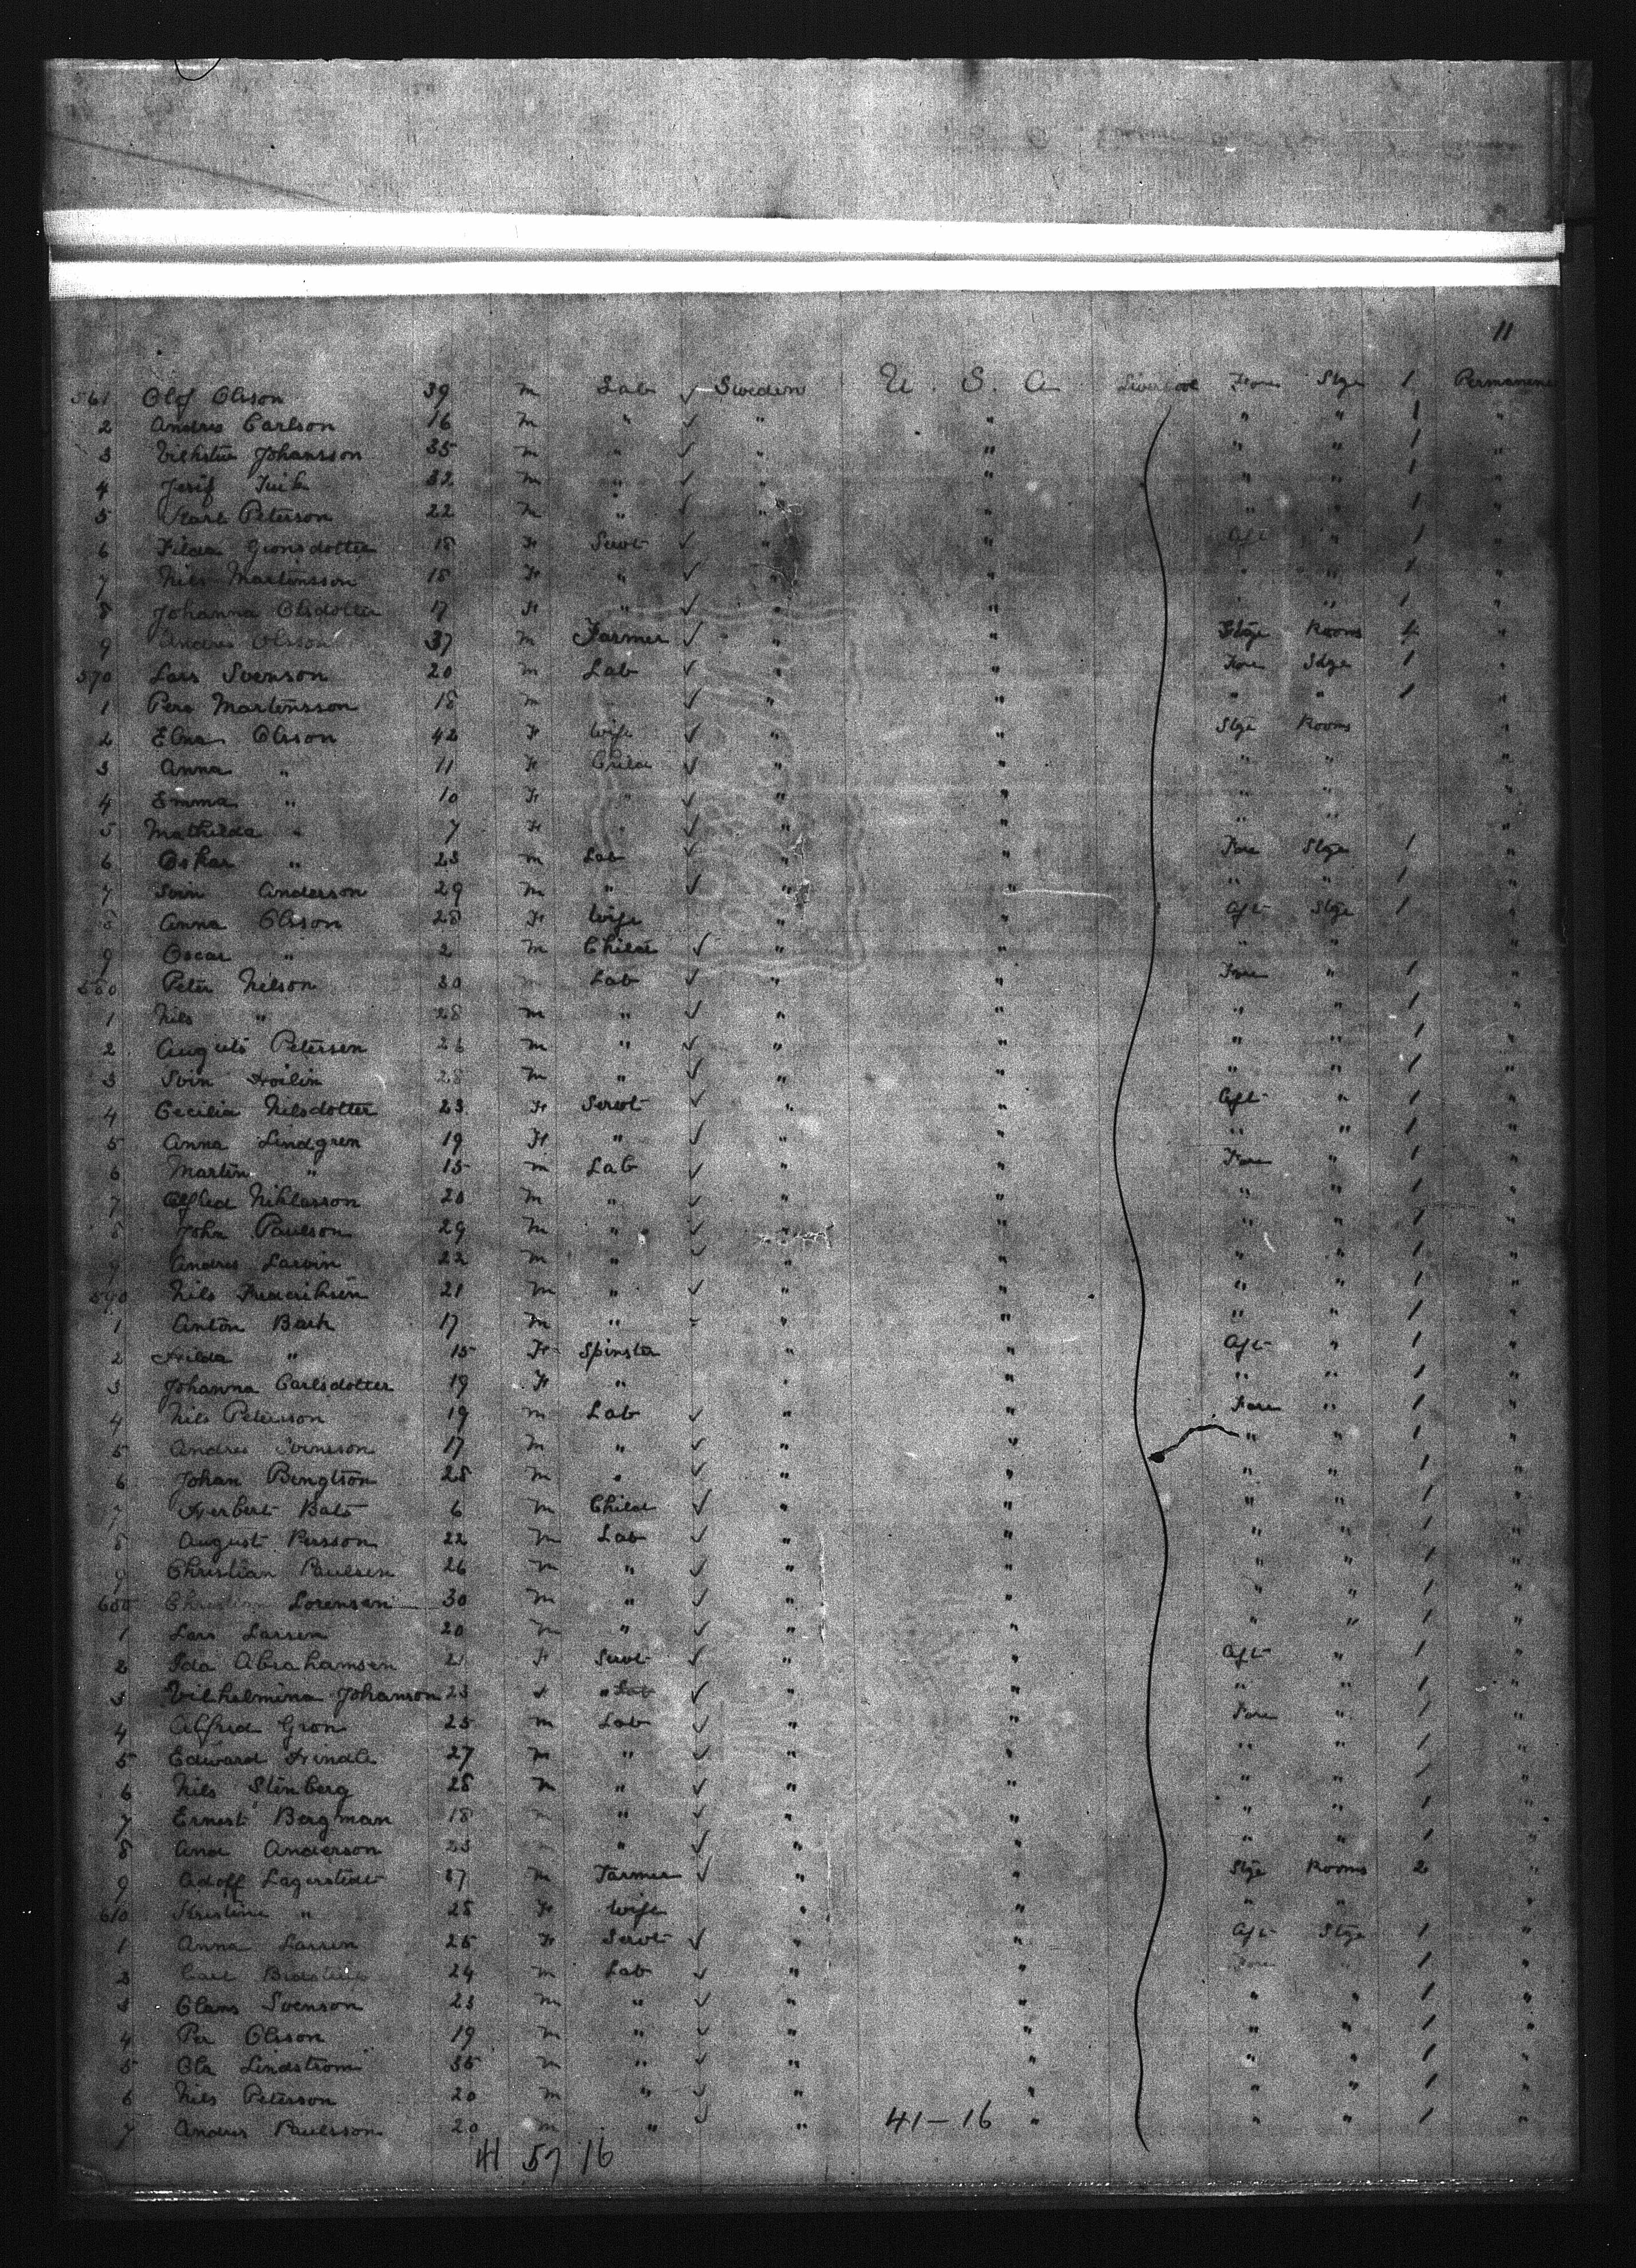 11
561 Olof Olsson 39 m Lab ✓ Sweden U. S. A Liverpool Fore Stge 1 Permanent
2 Andres Carlson 16 m " ✓ " " " " 1 "
3 Johansson 35 m " ✓ " " " " 1 "
4 32 m " ✓ " " " " 1 "
5 Karl Peterson 22 m " ✓ " " " " 1 "
6 18 F Servt ✓ " " Aft " 1 "
7 Nils Martinsson 18 F " ✓ " " " " 1 "
8 Johanna Olsdotter 17 F " ✓ " " " " 1 "
9 Andres Olsson 37 m Farmer ✓ " " Stge Rooms 4 "
570 Lars Svenson 20 m Lab ✓ " " Fore Stge 1 "
1 Pera Martensson 18 m ✓ " " " " 1 "
2 Elna Olsson 42 F Wife ✓ " " Stge Rooms "
3 Anna " 11 F Child ✓ " " " " "
4 Emma " 10 F " ✓ " " " " "
5 Mathilda " 7 F " ✓ " " " " "
6 Oskar " 23 m Lab ✓ " " Fore Stge 1 "
7 Svin Anderson 29 m " ✓ " " " " 1 "
8 Anna Olsson 28 F Wife " " Aft Stge 1 "
9 Oscar " 2 m Child ✓ " " " " "
580 Peter Nilson 30 m Lab ✓ " " Fore " 1 "
1 Nils " 28 m " ✓ " " " " 1 "
2 August Petersen 26 m " ✓ " " " " 1 "
3 Svin 28 m " ✓ " " " " 1 "
4 Cecilia Nilsdotter 23 F Servt ✓ " " Aft " 1 "
5 Anna Lindgren 19 F " ✓ " " " " 1 "
6 Martin " 15 m Lab ✓ " " Fore " 1 "
7 Alfred Niklasson 20 m " ✓ " " " " 1 "
8 John Paulson 29 m " ✓ " " " " 1 "
9 Andres 22 m " ✓ " " " " 1 "
590 Nils Frederiksen 21 m " ✓ " " " " 1 "
1 Anton Bach 17 m " " " " " 1 "
2 Hilda " 15 F Spinster " " Aft " 1 "
3 Johanna Carlsdotter 19 F " " " " " 1 "
4 Nils Peterson 19 m Lab ✓ " " Fore " 1 "
5 Andres Svensson 17 m " ✓ " " " " 1 "
6 Johan Bengtson 28 m " ✓ " " " " 1 "
7 Herbert 6 m Child ✓ " " " " 1 "
8 August Persson 22 m Lab ✓ " " " " 1 "
9 Christian Paulsen 26 m " ✓ " " " " 1 "
600 Christian Lorensen 30 m " ✓ " " " " 1 "
1 Lars Larsen 20 m " ✓ " " " " 1 "
2 Ida Abrahamsen 21 F Servt ✓ " " Aft " 1 "
3 Vilhelmina Johanson 23 F " ✓ " " " " 1 "
4 Alfred Gron 25 m Lab ✓ " " Fore " 1 "
5 Edward 27 m " ✓ " " " " 1 "
6 Nils Stenberg 28 m " ✓ " " " " 1 "
7 Ernest Bergman 18 m " ✓ " " " " 1 "
8 And Anderson 23 m " ✓ " " " " 1 "
9 Adolf Lagerstedt 37 m Farmer ✓ " " Stge Rooms 2 "
610 Kristine " 28 F Wife " " " " "
1 Anna Larsen 25 F Servt ✓ " " Aft Stge 1 "
2 Carl 24 m Lab ✓ " " Fore " 1 "
3 Clans Svenson 23 m " ✓ " " " " 1 "
4 Per Olsson 19 m " ✓ " " " " 1 "
5 Ola Lindstrom 35 m " ✓ " " " " 1 "
6 Nils Peterson 20 m " ✓ " " " " 1 "
7 Andres Paulsson 20 m " ✓ " 41-16 " " " 1 "
41 57 16